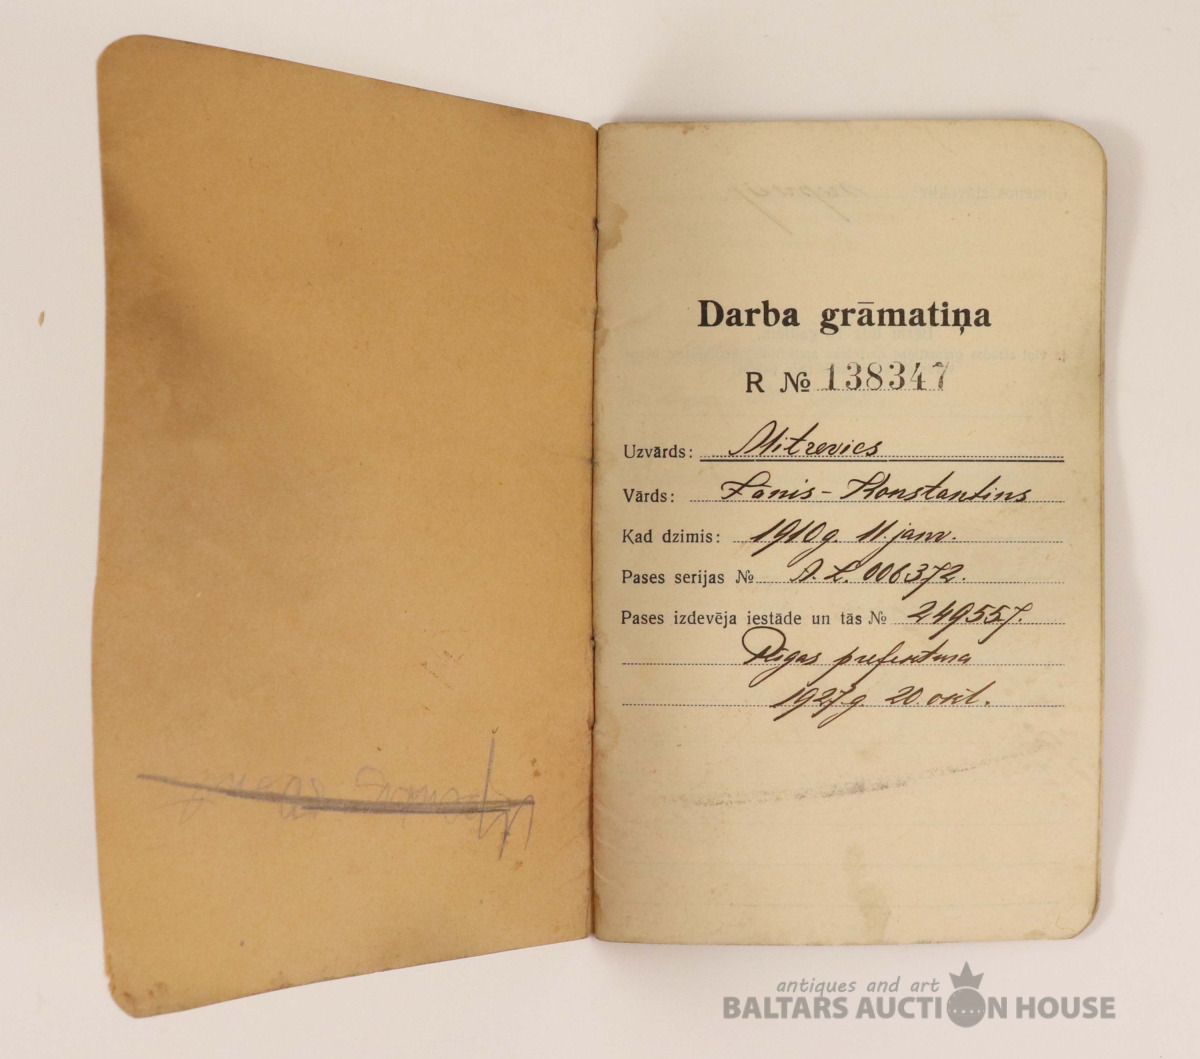 Darba grāmatiņa
R № 138347
Uzvārds: Mitrevics
Vārds: Žanis-Konstantins
Kad dzimis: 1910g. 11. janv.
Pases serijas № A.L. 006372.
Pases izdevēja iestāde un tās № 249557.
Rīgas prefektura
1927g. 20. okt.
antiques and art
BALTARS AUCTION HOUSE